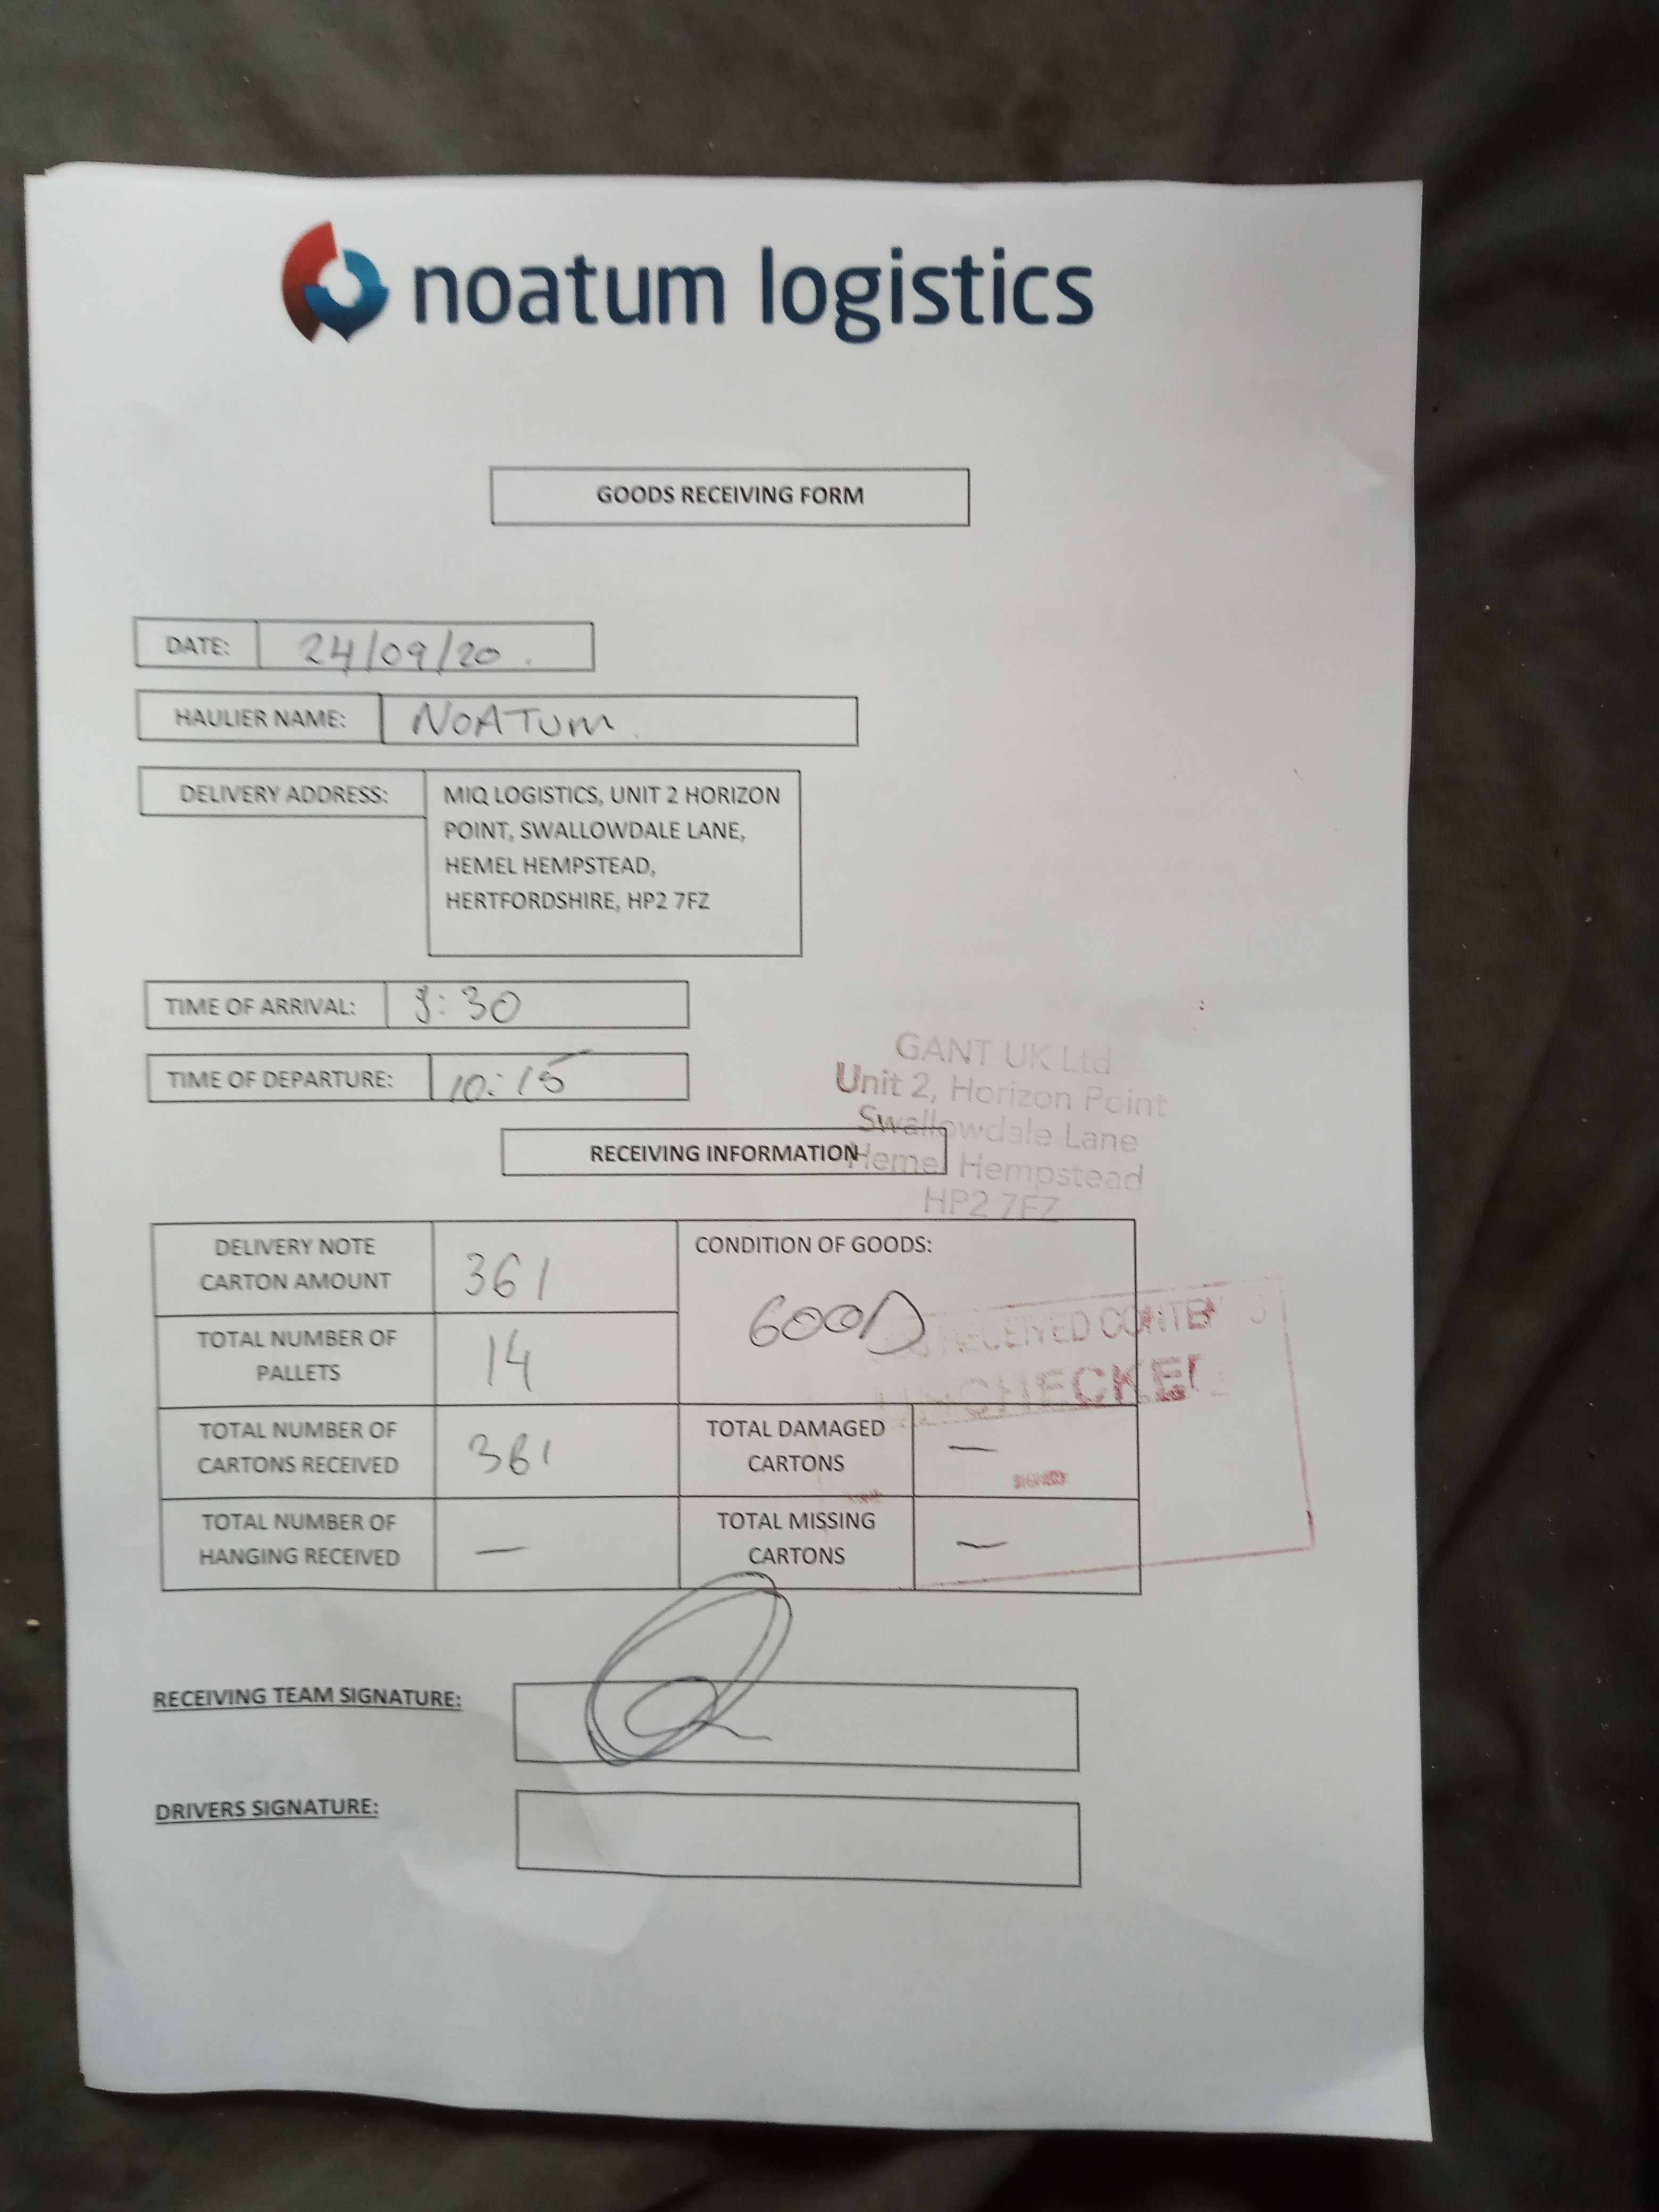 noatum logistics
GOODS RECEIVING FORM
DATE: 24/09/20
HAULIER NAME: NOATUM
DELIVERY ADDRESS: MIQ LOGISTICS, UNIT 2 HORIZON
POINT, SWALLOWDALE LANE,
HEMEL HEMPSTEAD,
HERTFORDSHIRE, HP2 7FZ
TIME OF ARRIVAL: 9:30
TIME OF DEPARTURE: 10:15
GANT UK Ltd
Unit 2, Horizon Point
Swallowdale Lane
Hemel Hempstead
HP2 7FZ
RECEIVING INFORMATION
DELIVERY NOTE
CARTON AMOUNT
361
CONDITION OF GOODS:
GOOD
RECEIVED CONTENTS
UNCHECKED
TOTAL NUMBER OF
PALLETS
14
TOTAL NUMBER OF
CARTONS RECEIVED
361
TOTAL DAMAGED
CARTONS
—
SIGNED
TOTAL NUMBER OF
HANGING RECEIVED
—
TOTAL MISSING
CARTONS
—
RECEIVING TEAM SIGNATURE:
DRIVERS SIGNATURE: